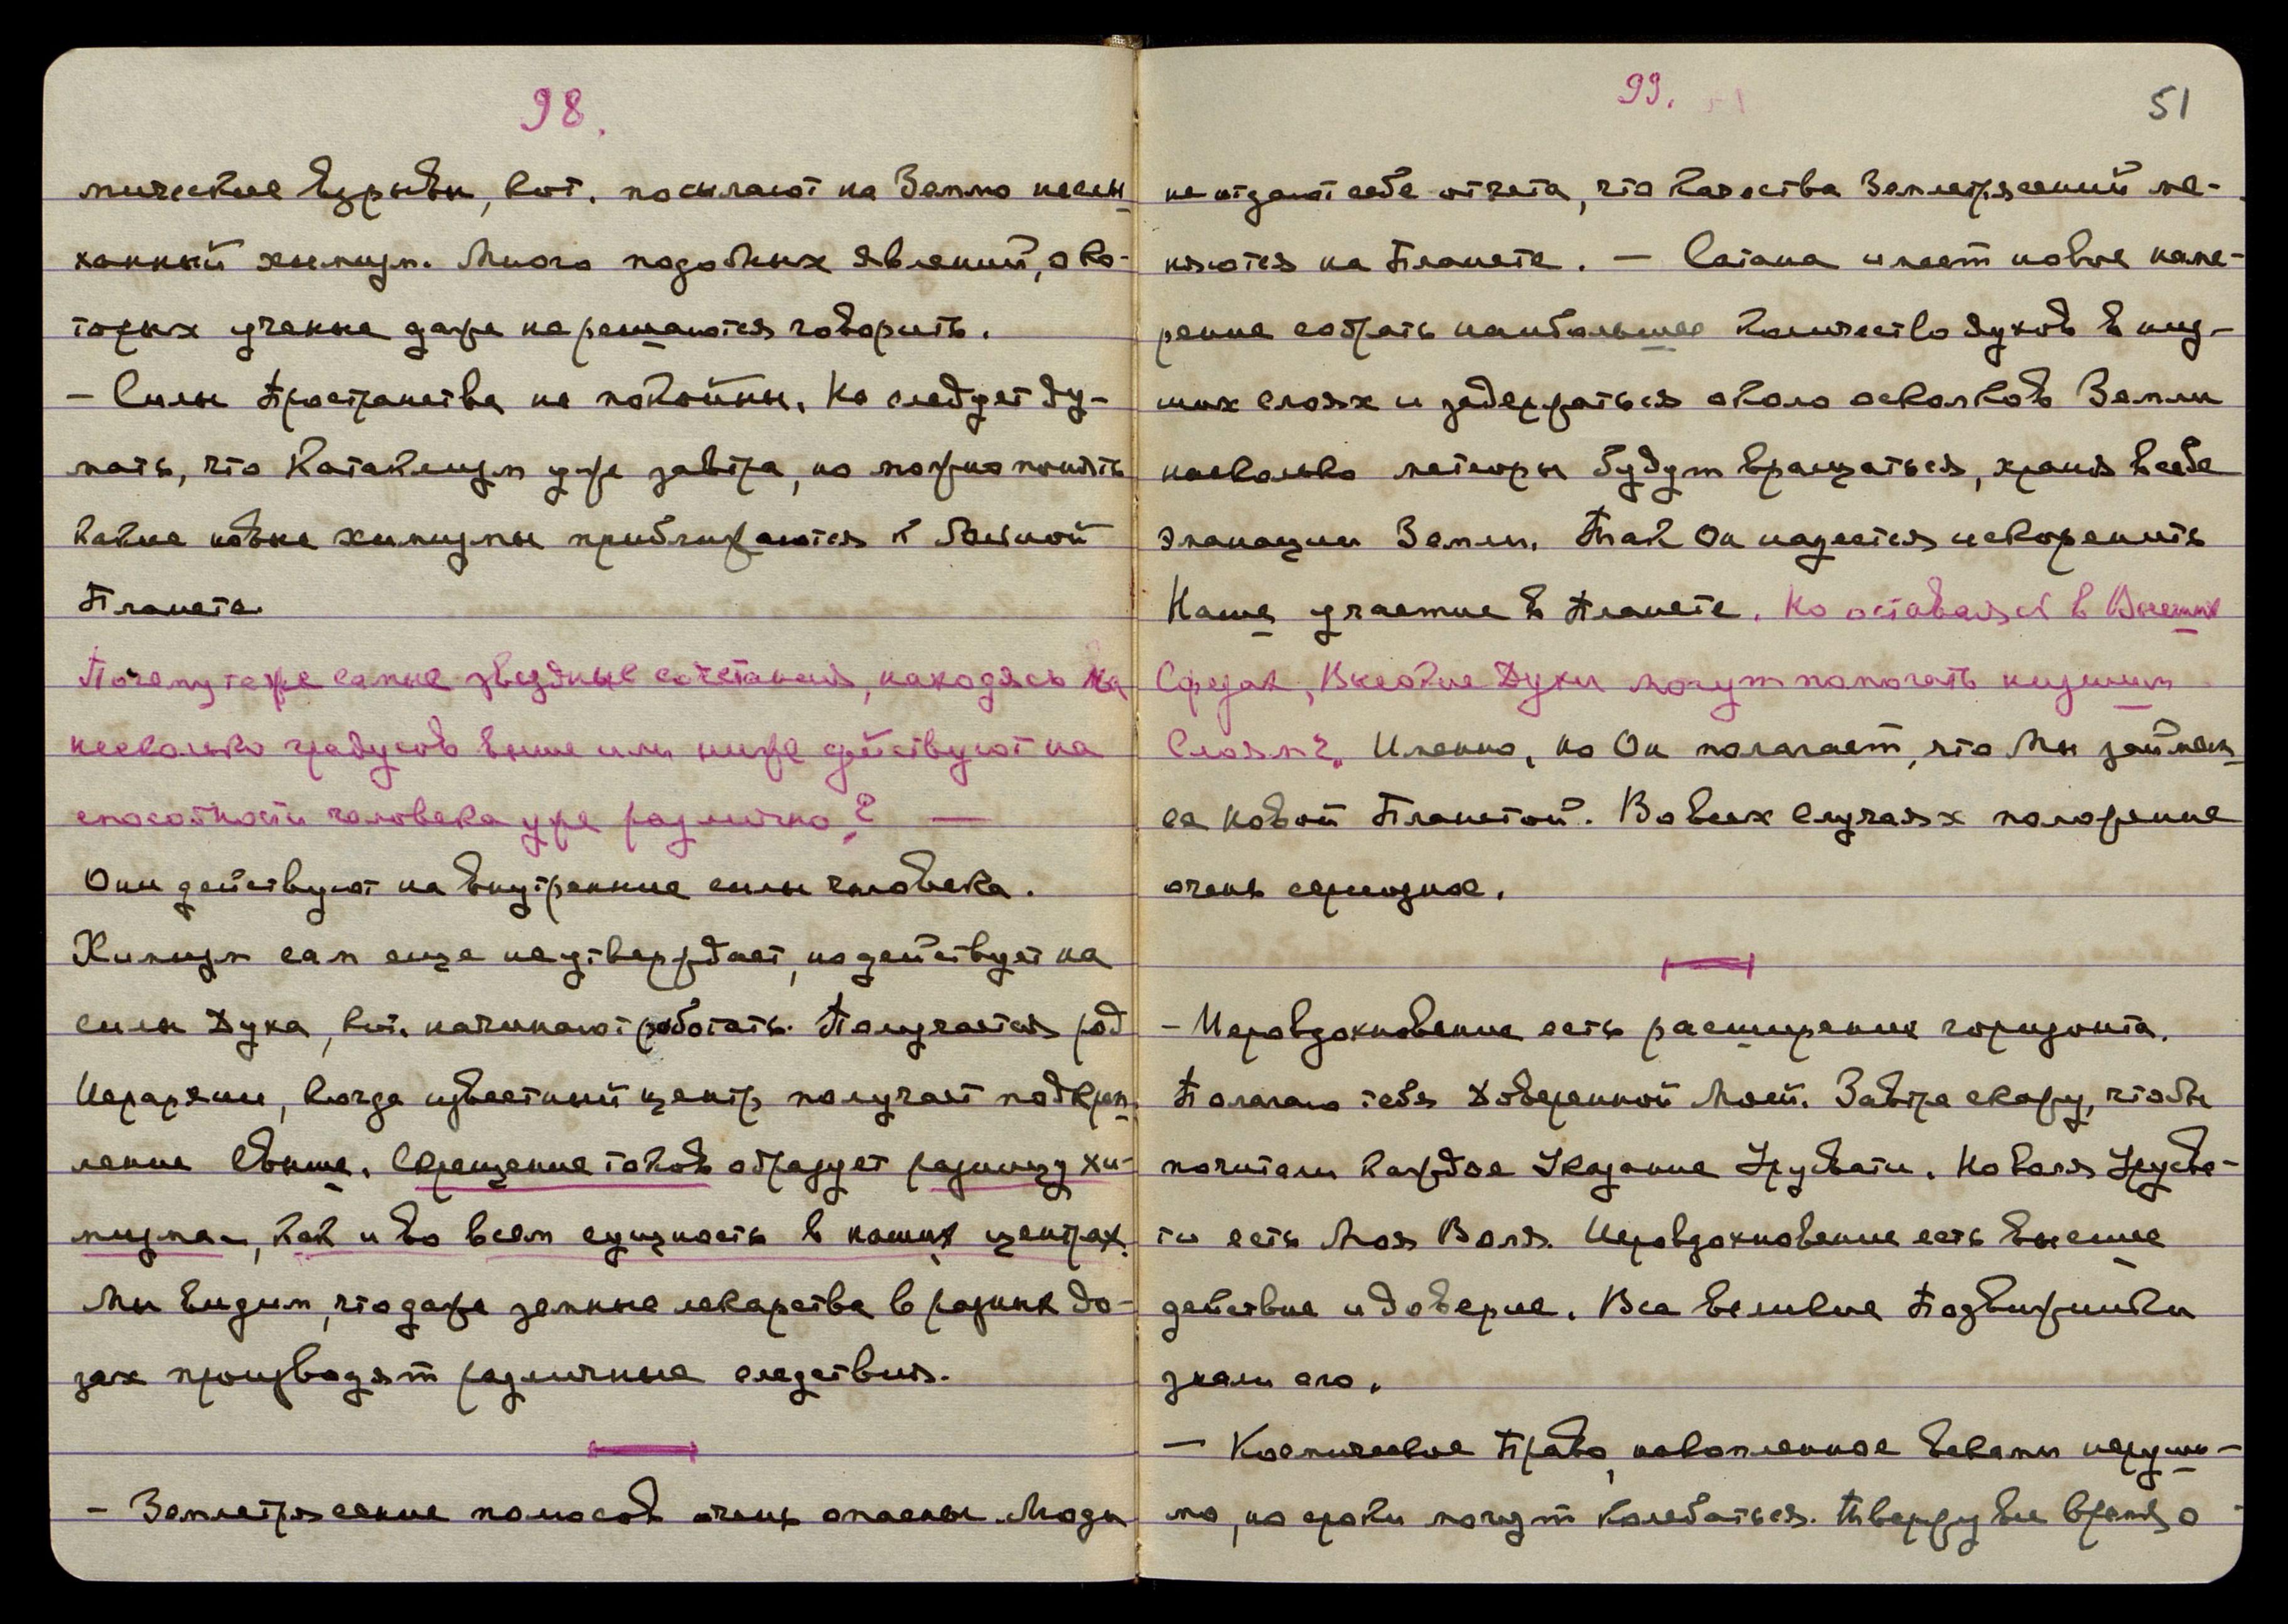 98.
мические взрывы, кот. посылают на Землю неслы-
ханный химизм. Много подобных явлений, о ко-
торых ученые даже не решаются говорить.
– Силы Пространства не покойны. Не следует ду-
мать, что Катаклизм уже завтра, но можно понять
какие новые химизмы приближаются к больной
Планете.
Почему те же самые звездные сочетания, находясь на
несколько градусов выше или ниже действуют на
способности человека уже различно? —
Они действуют на внутренние силы человека.
Химизм сам еще не утверждает, но действует на
силы Духа, кот. начинают работать. Получается род
Иерархии, когда известный центр получает подкреп-
ление свыше. Скрещение токов образует разницу хи-
мизма, как и во всем сущность в наших центрах.
Мы видим, что даже земные лекарства в разных до-
зах производят различные следствия.
– Землетрясение полюсов очень опасны. Люди
99.
51
не отдают себе отчета, что качества Землетрясений ме-
няются на Планете. – Сатана имеет новое наме-
рение собрать наибольшее количество духов в низ-
ших слоях и задержаться около осколков Земли
насколько метеоры будут вращаться, храня в себе
эманации Земли. Так Он надеется искоренить
Наше участие в Планете. Но оставаясь в Высших
Сферах, Высокие Духи могут помогать низшим
Слоям? Именно, но Он полагает, что Мы займем-
ся новой Планетой. Во всех случаях положение
очень серьозное.
– Иеровдохновение есть расширение горизонта.
Полагаю тебя Доверенной Моей. Завтра скажу, чтобы
почитали каждое Указание Урусвати. Но воля Урусва-
ти есть Моя Воля. Иеровдохновение есть высшее
действие и доверие. Все великие Подвижники
знали его.
– Космическое Право, накопленное веками неруши-
мо, но сроки могут колебаться. Твержу все время о